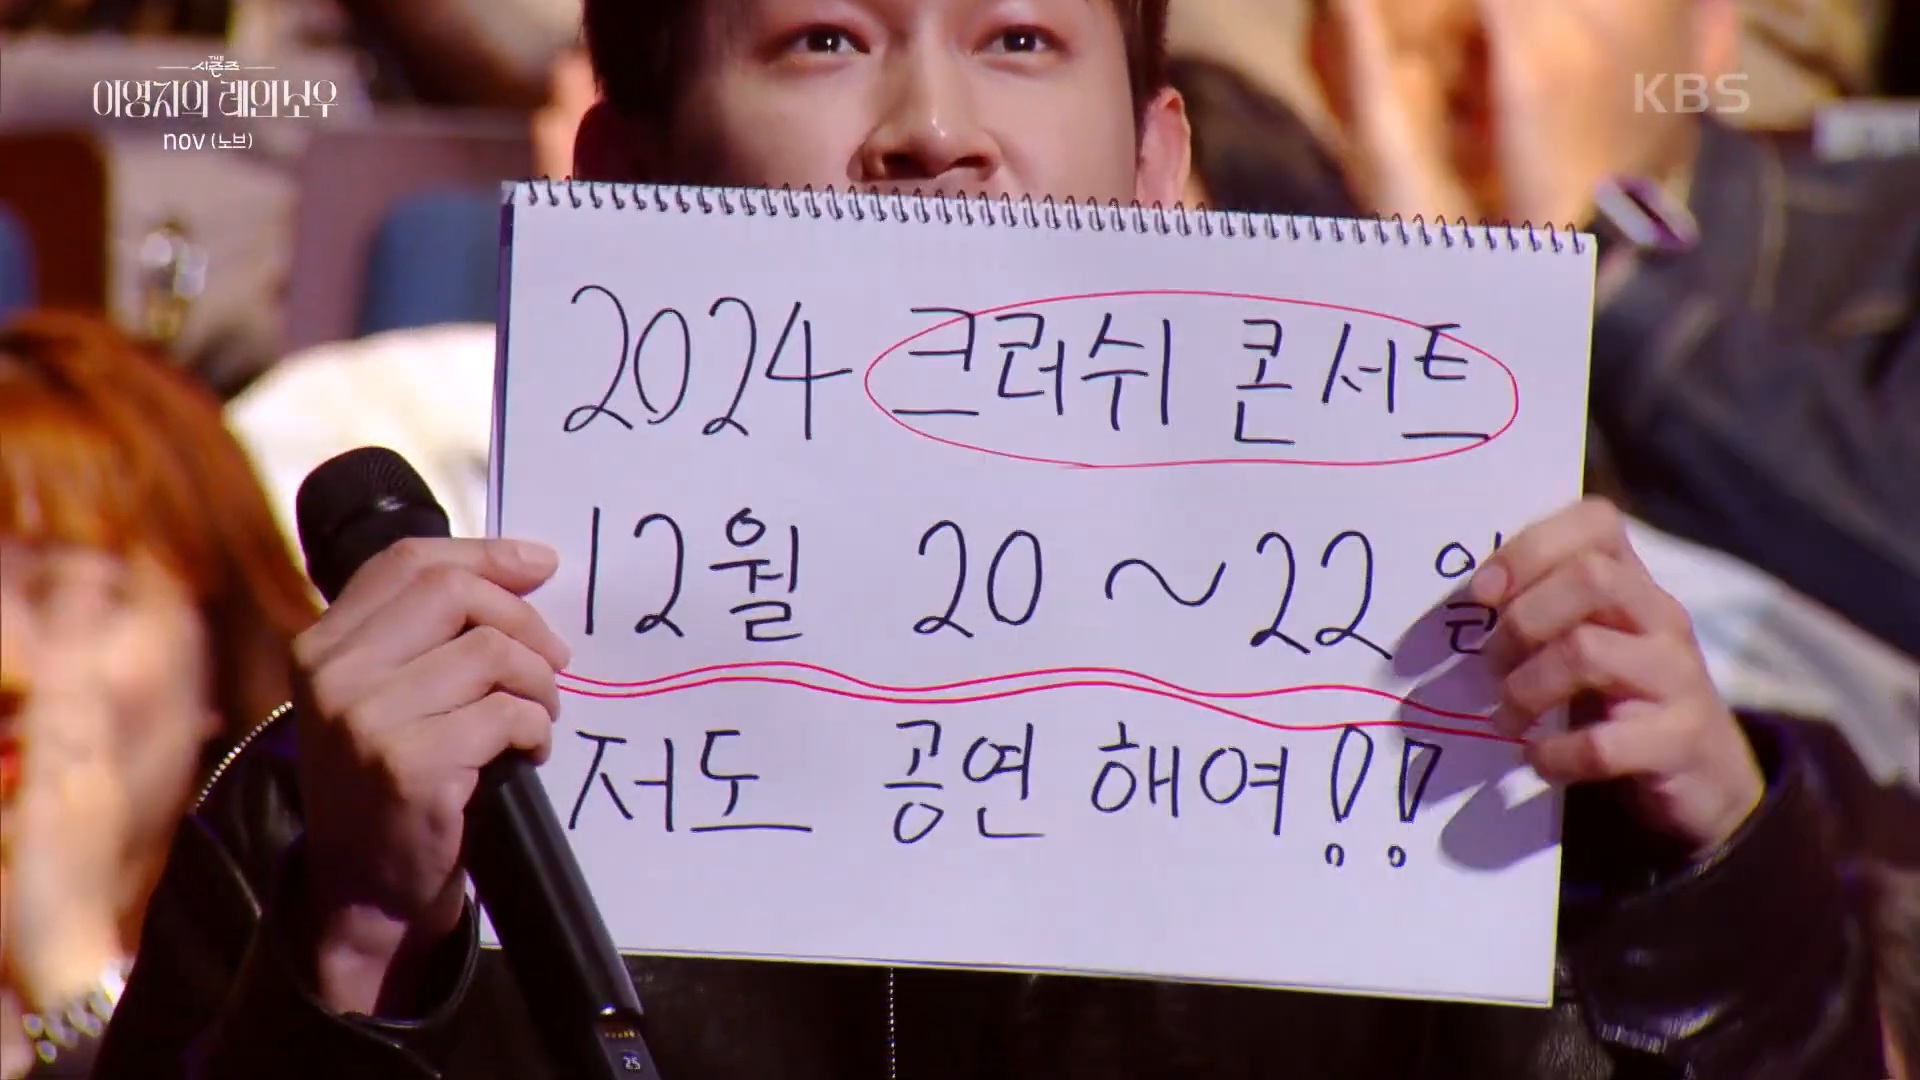 THE
시즌즈
이영지의 레인보우
nov (노브)
KBS
2024 크러쉬 콘서트
12월 20~22일
저도 공연해여!!
25